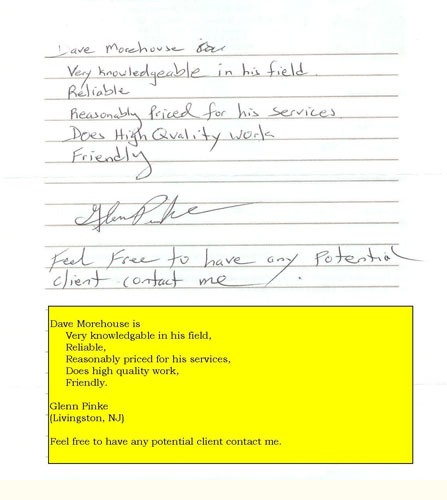 Dave Morehouse
Very knowledgeable in his field.
Reliable
Reasonably Priced for his services
Does High Quality work
Friendly
Glenn Pinke
Feel Free to have any Potential
client contact me.
Dave Morehouse is
Very knowledgable in his field,
Reliable,
Reasonably priced for his services,
Does high quality work,
Friendly.
Glenn Pinke
(Livingston, NJ)
Feel free to have any potential client contact me.